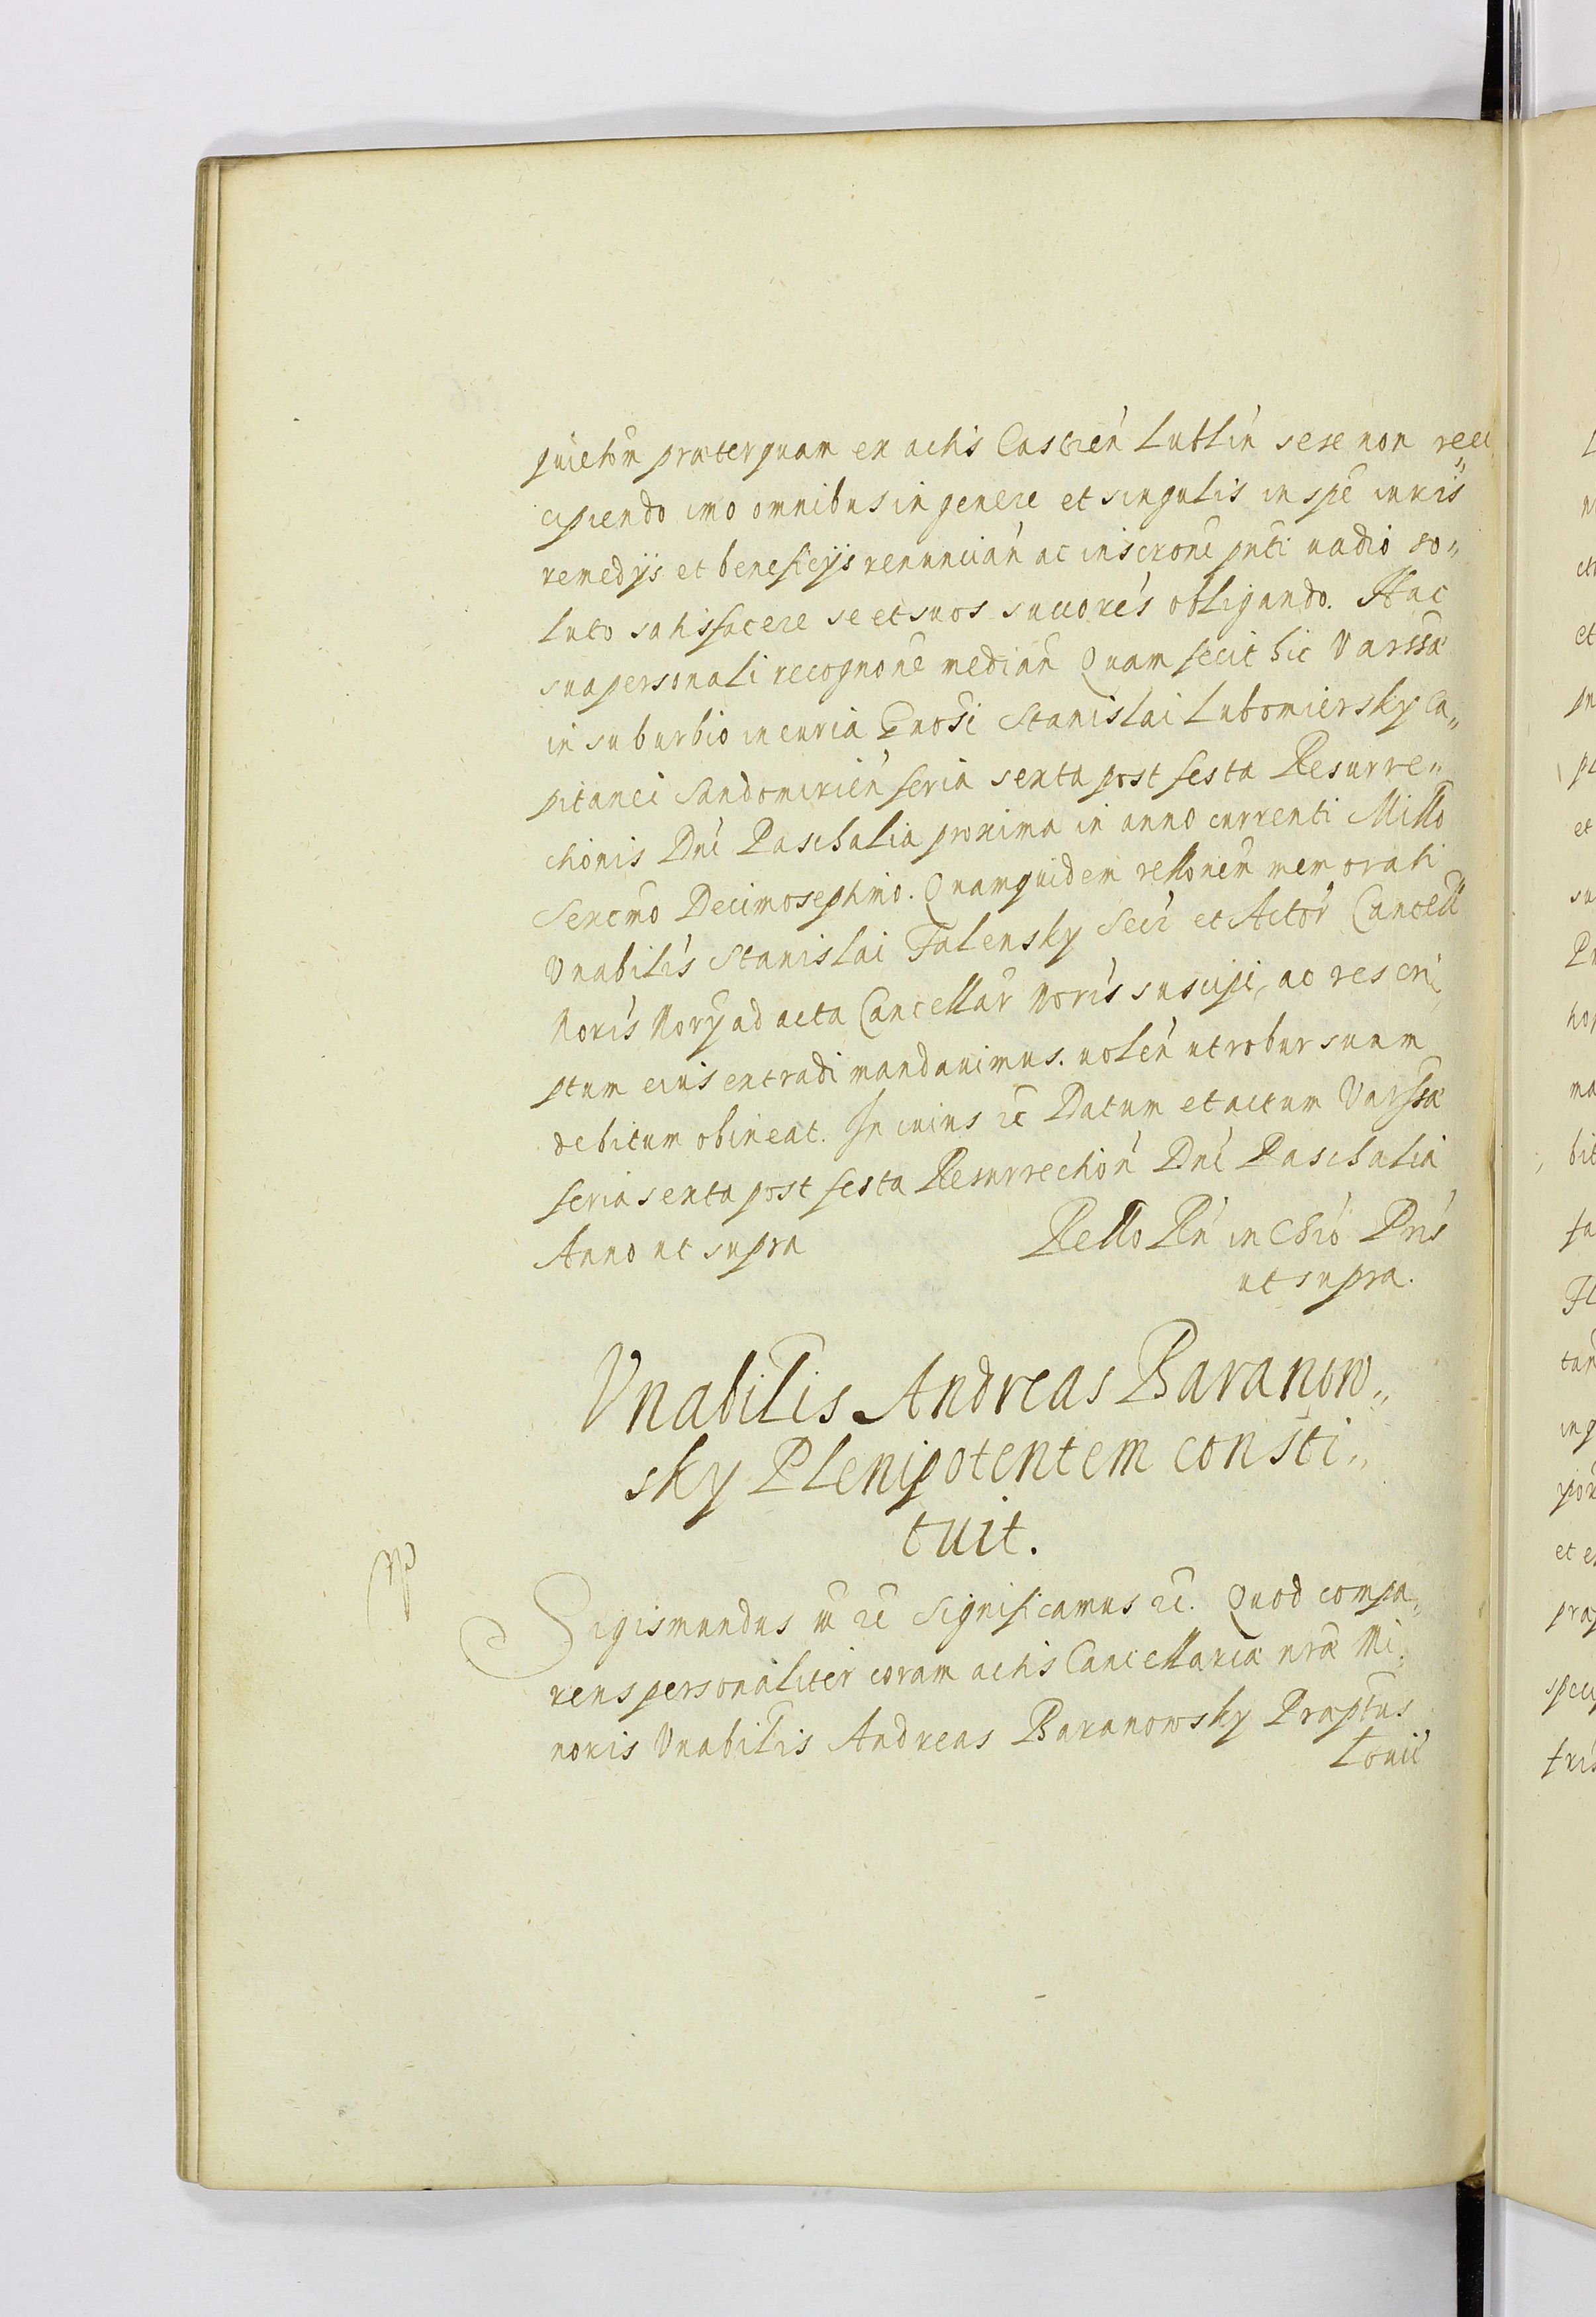 quietõn præterquam ex actis Castreń Lublin sese non reci
cipiendo imo omnibus in genere et singulis in spe iuris
remedys et beneficÿs renuncian̄ ac inscrone pnti vadio so„
luto satisfacere se et suos succores obligando. Hac
sua personali recognone median̄ Quam fecit hic Varssæ
in suburbio in curia Gnosi Stanislai Lubomiersky Ca„
pitanei Sandomirien feria sexta post festa Resurre„
ctionis Dni Paschalia proxima in anno currenti Millo
Sexcmo Decimoseptimo. Quamquidem rellonem memorati
Vnabilis Stanislai Falensky Secr et Actor Cancell
Noris Nory ad acta Cancellar Noris suscipi, ac rescri
ptum eius extradi mandauimus. uolen ut robur suum
debitum obineat. In cuius ꝛc Datum et actum Varssæ
feria sexta post festa Resurrection Dni Paschalia
Anno ut supra
Rello Rń in Chro Pris
ut supra.
Vnabilis Andreas Baranow„
sky Plenipotentem consti„
tuit.
Sigismundus ꝛc ꝛc Significamus ꝛc. Quod compa„
rens personaliter coram actis Cancellariæ nræ Mi„
noris Vnabilis Andreas Baranowsky Præptus